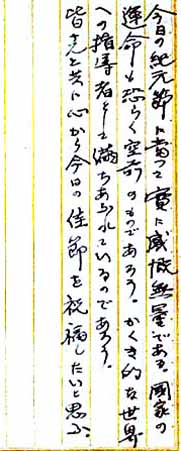 今日の紀元節に當って實に感慨無量である。國家の
運命も恐らく空前のものであろう。かくき的な世界
への指導者として満ちあふれているのであろう。
皆さんと共に心から今日の佳節を祝福したいと思ふ。